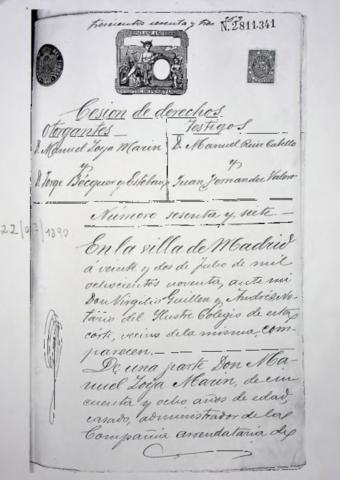 Trescientos sesenta y tres
N. 2811.341
Cesion de derechos
Otorgantes
Testigos
D. Manuel Zoya Marin
D. Manuel Ruiz Cabello
y
y
D. Jorge Bécquer y Esteban
Juan Fernandez Valero
Número sesenta y siete
22/07/1890
En la villa de Madrid
á veinte y dos de Julio de mil
ochocientos noventa, ante mi
Don Virgilio Guillen y Andrés No-
tario del Ilustre Colegio de esta
corte, vecino de la misma, com-
parecen.
De una parte Don Ma-
nuel Zoya Marin, de cin-
cuenta y ocho años de edad,
casado, administrador de la
Compañia arrendataria de